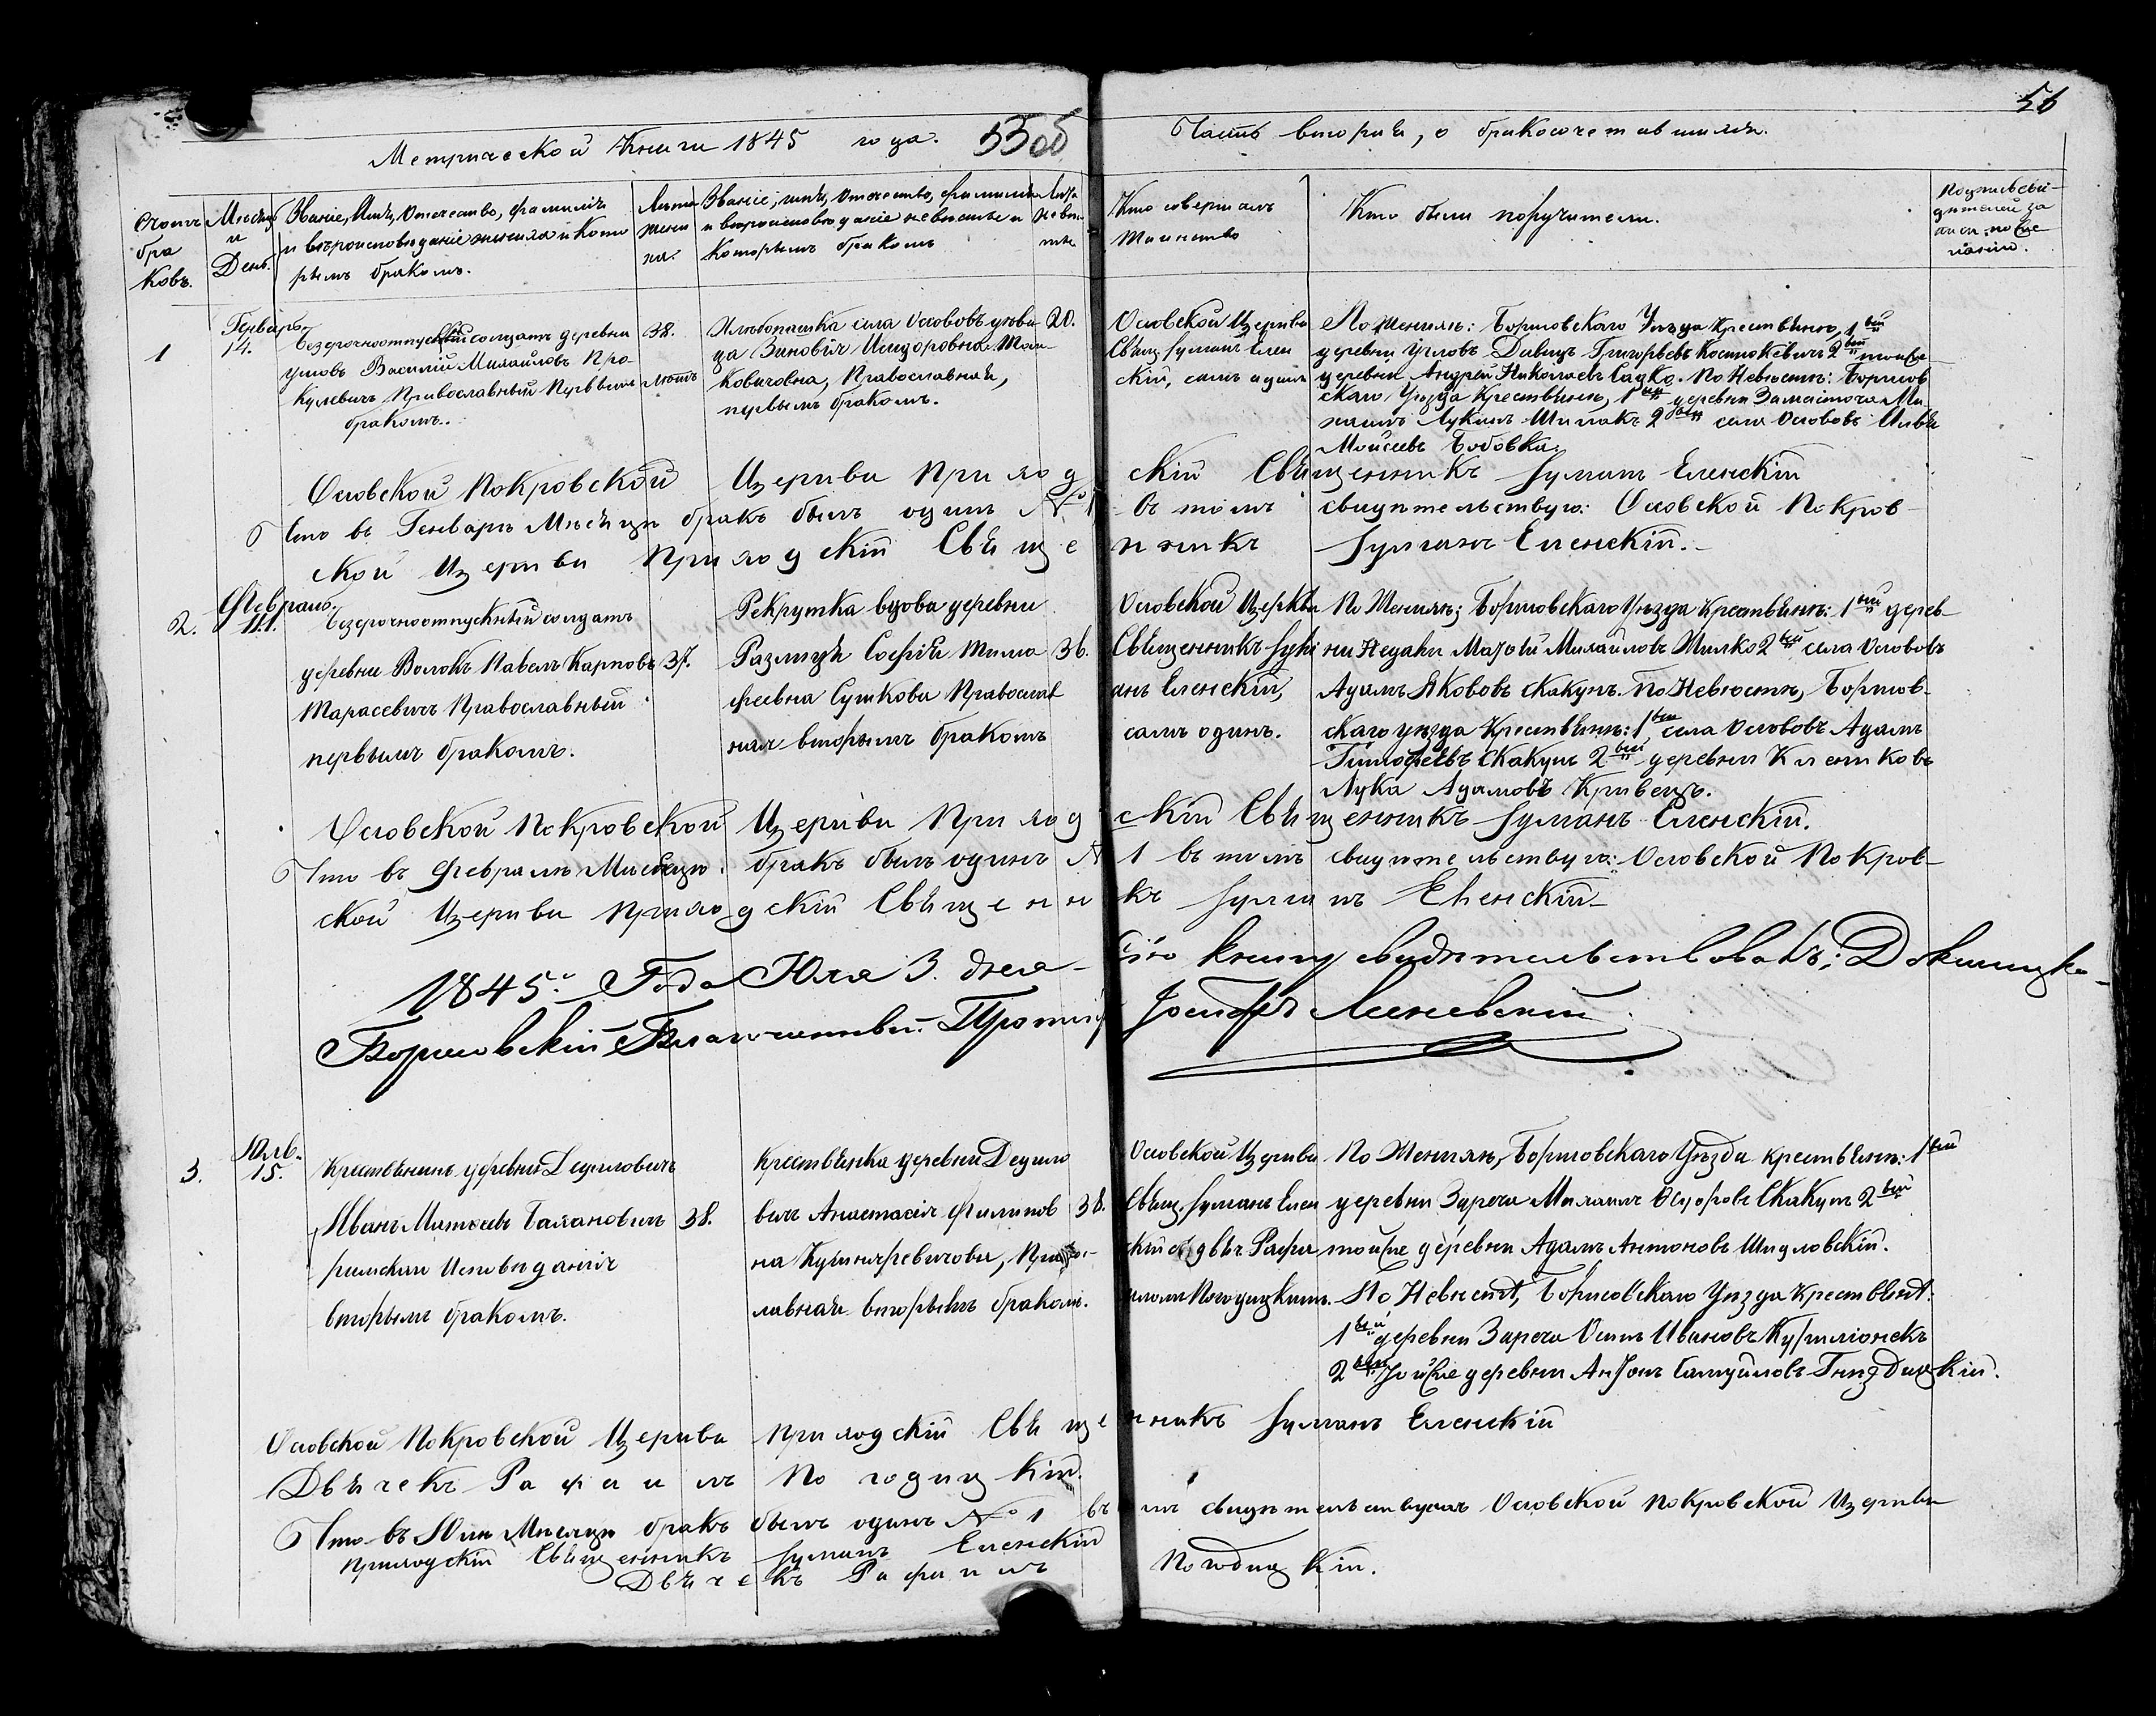 56
Метрической Книги 1845 года. 55 об
Часть вторая, о бракосочетавшихся.
Счотъ бра ковъ.
Месяцъ и День.
Званіе, Имя, Отечество, фамилія
и вероисповеданіе жениха и кото
рымъ бракомъ.
Лета жени ха.
Званіе, имя, отечество, фамилія
и вероисповеданіе невесты и
которымъ бракомъ
Лета невес ты
Кто совершалъ
таинство
Кто были поручители.
1
Генварь.
14.
Безсрочноотпускный солдатъ деревни
Василій Михайловъ Про-
кулевичъ Православный первымъ
бракомъ.
38.
летъ
Хлебопашка села Осововъ деви
ца Зиновія Исидоровна
Православная,
первымъ бракомъ.
20.
Осовской Церкви
Свящ. Іуліанъ Елен
скій, самъ одинъ
По Женихе: Борисовскаго Уезда крестьяне, 1вый
деревни Давидъ Григорьевъ 2вый тойже
деревни Андрей Николаевъ Садко. По Невесте: Борисов
скаго Уезда крестьяне, 1вый деревни
Лукинъ 2вый села Осововъ
Моисеевъ Бобовка.
Осовской Покровской Церкви Приход скій Священникъ Іуліанъ Еленскій
Что въ Генваре Месяце бракъ былъ одинъ № 1 въ томъ свидетельствую: Осовской Покров-
ской Церкви Приходскій Священникъ Іуліанъ Еленскій.
2.
Февраль.
11.
Безсрочноотпускный солдатъ
деревни Волокъ Павелъ Карповъ
Тарасевичъ Православный
первымъ бракомъ.
37.
Рекрутка вдова деревни
Софія Тимо
феевна Сушкова Православ
ная вторымъ бракомъ
36.
Осовской Церкви
Священникъ Іулі
анъ Еленскій,
самъ одинъ.
По Женихе; Борисовскаго Уезда крестьяне: 1вый дерев-
ни Недахи Матвій Михайловъ Шилко 2вый села Осововъ
Адамъ Якововъ Скакунъ. По Невесте, Борисов-
скаго уезда Крестьяне: 1вый села Осововъ Адамъ
Тимофеевъ Скакунъ 2вый деревни Клениковъ
Лука Адамовъ Кривецъ.
Осовской Покровской Церкви Приход скій Священникъ Іуліанъ Еленскій.
Что въ Феврале Месяце бракъ былъ одинъ № 1 въ томъ свидетельствую: Осовской Покров-
ской Церкви приходскій Священникъ Іуліанъ Еленскій
1845. Года Юля 3. дня сію книгу свидетельствовалъ: Докшицко-
Борисовскій Благочинный Протоіе Іосифъ
3.
Юль.
15.
Крестьянинъ деревни Дедиловичъ
Иванъ Матеевъ Балановичъ
римскаго Исповеданія
вторымъ бракомъ.
38.
Крестьянка деревни Дедило
вичъ Анастасія Филипов
на Кушнеревичова, Правос-
лавная вторымъ бракомъ.
38.
Осовской Церкви
Свящ. Іуліанъ Елен
скій съ дяч. Рафа
иломъ Погодицкимъ.
По Женихе, Борисовскаго Уезда крестьяне: 1вый
деревни Заречя Михаилъ Ѳедоровъ Скакунъ 2вый
тойже деревни Адамъ Антоновъ Шидловскій.
По Невесте, Борисовскаго Уезда крестьяне:
1вый деревни Заречя Осипъ Ивановъ
2вый тойже деревни Антонъ Самуиловъ Гнездицкій.
Осовской Покровской Церкви приходскій Священникъ Іуліанъ Еленскій
Дьячекъ Рафаилъ Погодицкій.
Что въ Юли Месяце бракъ былъ одинъ № 1 въ томъ свидетельствуемъ Осовской Покровской Церкви
приходскій Священникъ Іуліанъ Еленскій
Дьячекъ Рафаилъ Погодицкій.